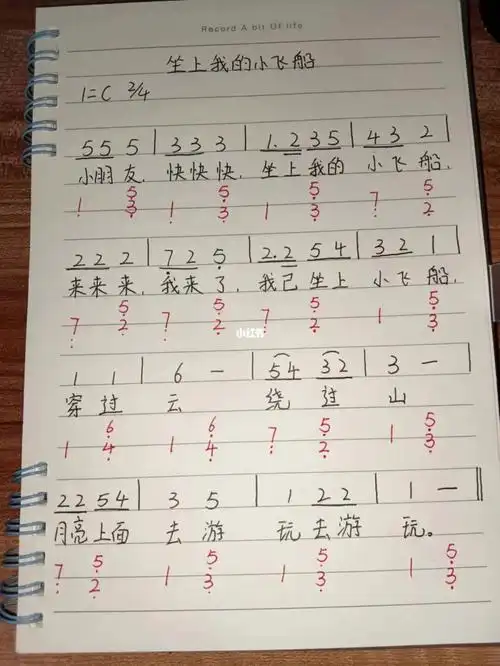 Record A bit Of life
坐上我的小飞船
1=C 2/4
5 5 5 | 3 3 3 | 1. 2 3 5 | 4 3 2 |
小朋友, 快快快, 坐上我的 小飞船,
1 5 3 1 5 3 1 5 3 7 5 2
2 2 2 | 7 2 5 | 2. 2 5 4 | 3 2 1 |
来来来, 我来了, 我已坐上 小飞船,
7 5 2 7 5 2 7 5 2 1 5 3
小红书
1 1 | 6 — | 5 4 3 2 | 3 — |
穿过 云 绕过 山
1 6 4 1 6 4 7 5 2 1 5 3
2 2 5 4 | 3 5 | 1 2 2 | 1 — ||
月亮上面 去游 玩去游 玩。
7 5 2 1 5 3 1 5 3 1 5 3